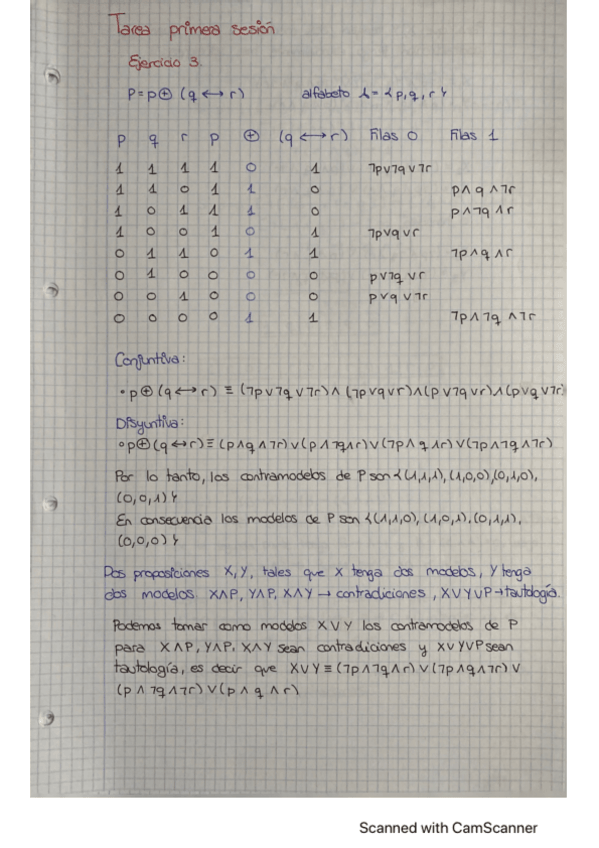 Tarea primera sesión
Ejercicio 3.
P=p⊕ (q ↔ r) alfabeto A= {p, q, r}
p q r p ⊕ (q ↔ r) Filas 0 Filas 1
1 1 1 1 0 1 ¬p∨¬q∨¬r
1 1 0 1 1 0 p∧q∧¬r
1 0 1 1 1 0 p∧¬q∧r
1 0 0 1 0 1 ¬p∨q∨r
0 1 1 0 1 1 ¬p∧q∧r
0 1 0 0 0 0 p∨¬q∨r
0 0 1 0 0 0 p∨q∨¬r
0 0 0 0 1 1 ¬p∧¬q∧¬r
Conjuntiva:
• p⊕(q↔r) ≡ (¬p∨¬q∨¬r)∧(¬p∨q∨r)∧(p∨¬q∨r)∧(p∨q∨¬r)
Disyuntiva:
• p⊕(q↔r)≡(p∧q∧¬r)∨(p∧¬q∧r)∨(¬p∧q∧r)∨(¬p∧¬q∧¬r)
Por lo tanto, los contramodelos de P son {(1,1,1),(1,0,0),(0,1,0),
(0,0,1)}
En consecuencia los modelos de P son {(1,1,0),(1,0,1),(0,1,1),
(0,0,0)}
Dos proposiciones X,Y, tales que X tenga dos modelos, Y tenga
dos modelos X∧P, Y∧P, X∧Y → contradiciones, X∨Y∨P→tautología.
Podemos tomar como modelos X∨Y los contramodelos de P
para X∧P, Y∧P, X∧Y sean contradiciones y X∨Y∨P sean
tautología, es decir que X∨Y≡(¬p∧¬q∧r)∨(¬p∧q∧¬r)∨
(p∧¬q∧¬r)∨(p∧q∧r)
Scanned with CamScanner